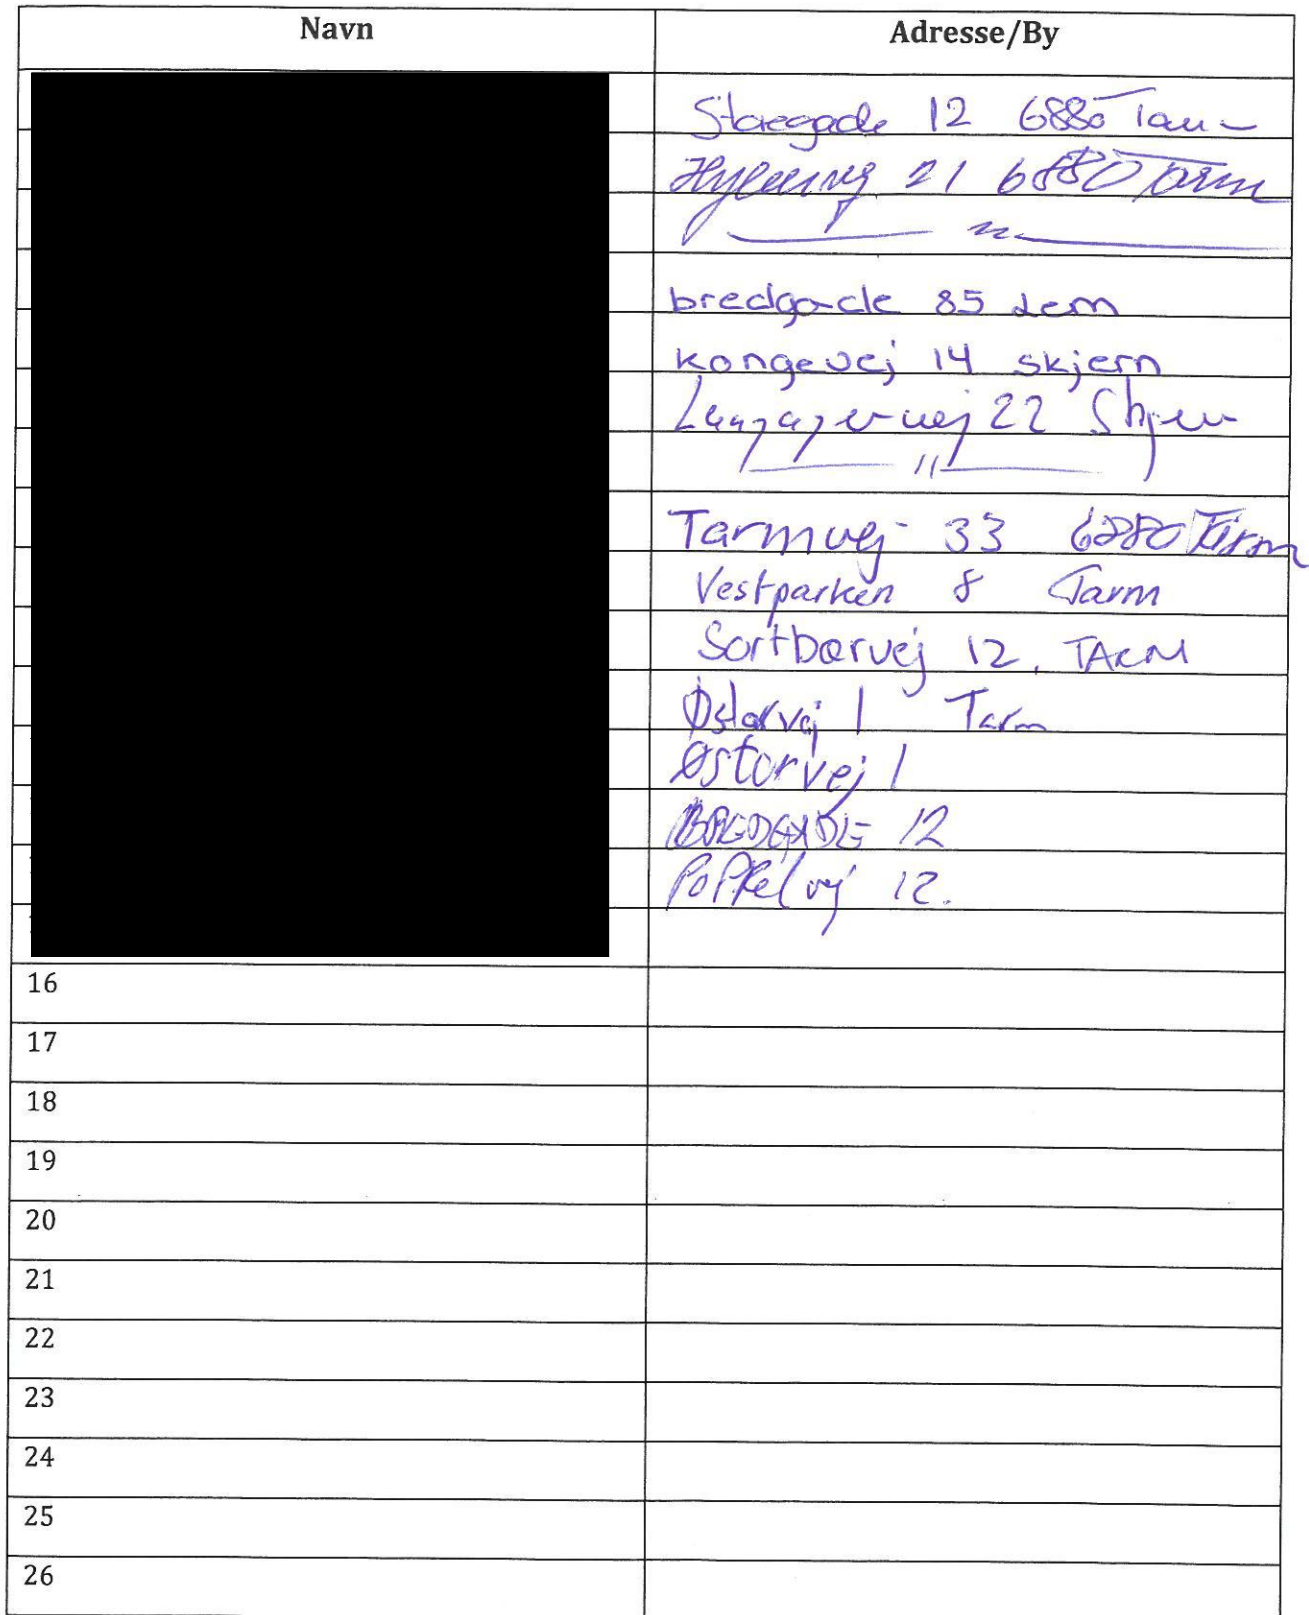 Navn Adresse/By
Storegade 12 6880 Tarm
21 6880 Tarm
bredgade 85 Lem
kongevej 14 skjern
22 Skjern
Tarmvej 33 6880 Tarm
Vestparken 8 Tarm
Sortbærvej 12, TARM
Østorvej 1 Tarm
Østorvej 1
BREDGADE 12
Poppelvej 12.
16
17
18
19
20
21
22
23
24
25
26